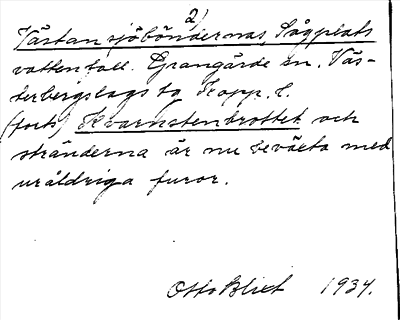 2)
Västansjöböndernas Sågplats
vattenfall. Grangärde sn. Väs-
terbergslags ts Kopp. l.
(forts) Kvarnstenbrottet och
stränderna är nu beväxta med
uråldriga furor.
Otto Blixt 1934.